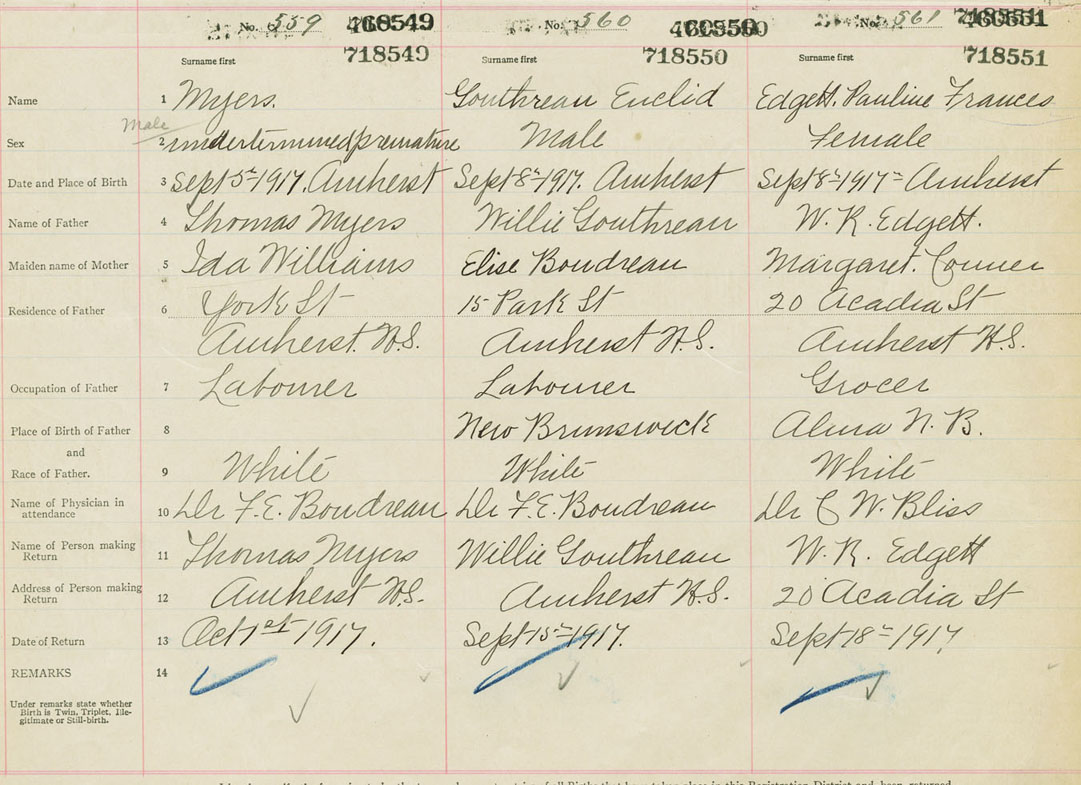 No. 559 468549 No. 560 460550 No. 561 460551
718549 718550 718551
Surname first Surname first Surname first
Name 1 Myers. Gouthreau Euclid Edgett. Pauline Frances
Male
Sex 2 undertermined premature Male Female
Date and Place of Birth 3 Sept 5th 1917. Amherst Sept 8th 1917. Amherst Sept 8th 1917 Amherst
Name of Father 4 Thomas Myers Willie Gouthreau W. R. Edgett.
Maiden name of Mother 5 Ida Williams Elise Boudreau Margaret. Conner
Residence of Father 6 York St 15 Park St 20 Acadia St
Amherst. N.S. Amherst N.S. Amherst N.S.
Occupation of Father 7 Labourer Labourer Grocer
Place of Birth of Father 8 New Brunswick Alma N. B.
and
Race of Father. 9 White White White
Name of Physician in attendance 10 Dr F. E. Boudreau Dr F. E. Boudreau Dr C W. Bliss
Name of Person making Return 11 Thomas Myers Willie Gouthreau W. R. Edgett
Address of Person making Return 12 Amherst N.S. Amherst N.S. 20 Acadia St
Date of Return 13 Oct 1st 1917. Sept 15th 1917. Sept 18th 1917
REMARKS 14
Under remarks state whether
Birth is Twin, Triplet, Ille-
gitimate or Still-birth.